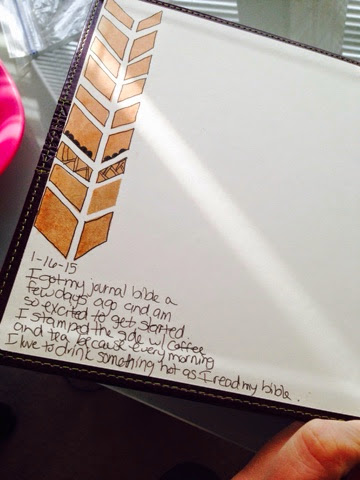 1-16-15
I got my journal bible a
few days ago and am
so excited to get started
I stamped the side w/ coffee
and tea because every morning
I love to drink something hot as I read my bible.